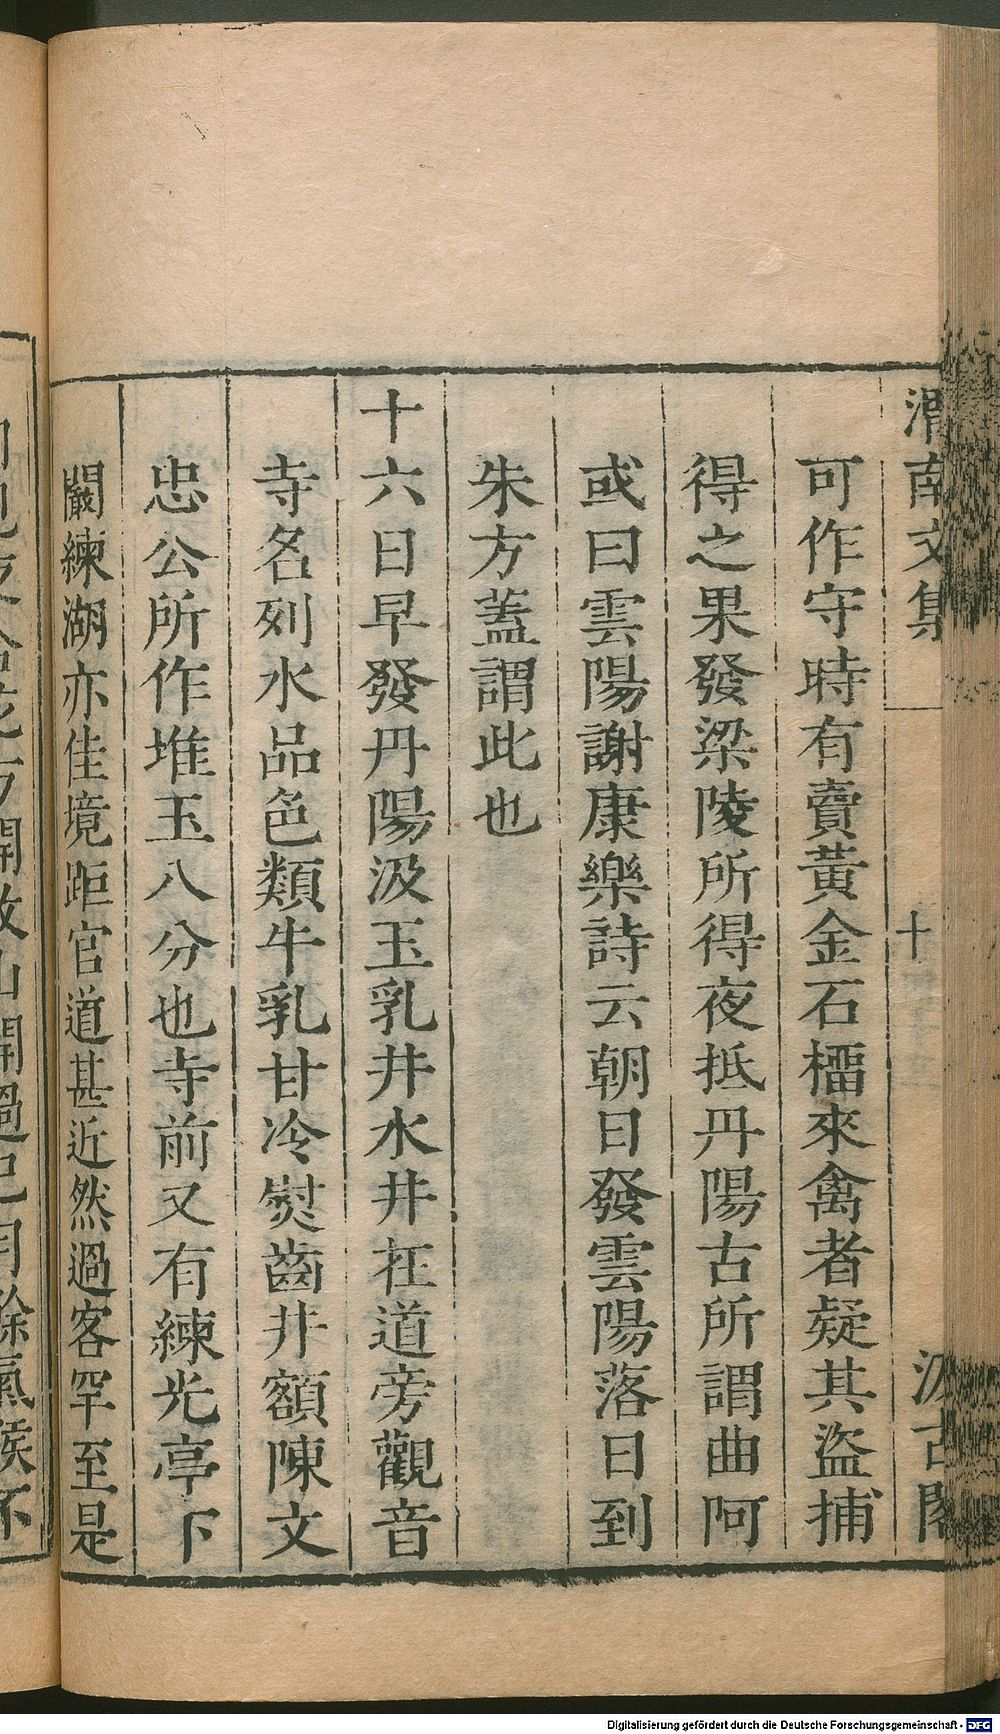 渭南文集 十 汲古閣
可作守時有賣黃金石榴來禽者疑其盜捕
得之果發梁陵所得夜抵丹陽古所謂曲阿
或曰雲陽謝康樂詩云朝日發雲陽落日到
朱方蓋謂此也
十六日早發丹陽汲玉乳井水井在道旁觀音
寺名列水品色類牛乳甘冷熨齒井額陳文
忠公所作堆玉八分也寺前又有練光亭下
闞練湖亦佳境距官道甚近然過客罕至是
Digitalisierung gefördert durch die Deutsche Forschungsgemeinschaft - DFG